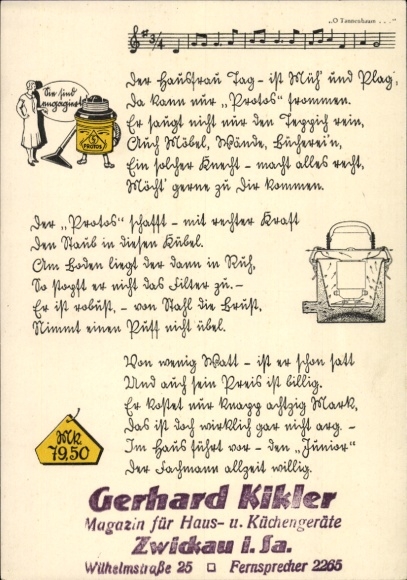 „O Tannenbaum . . .“
Sie sind
engagiert!
PROTOS
Der Hausfrau Tag – ist Müh' und Plag',
Da kann nur „Protos“ frommen.
Er saugt nicht nur den Teppich rein,
Auch Möbel, Wände, Bücherei'n,
Ein solcher Knecht – macht alles recht,
Möcht' gerne zu Dir kommen.
Der „Protos“ schafft – mit rechter Kraft
Den Staub in diesen Kübel.
Am Boden liegt der dann in Ruh,
So stopft er nicht das Filter zu. –
Er ist robust, – von Stahl die Brust,
Nimmt einen Puff nicht übel.
Von wenig Watt – ist er schon satt
Und auch sein Preis ist billig.
Er kostet nur knapp achtzig Mark,
Das ist doch wirklich gar nicht arg. –
Im Haus führt vor – den „Junior“
Der Fachmann allzeit willig.
Mk
79,50
Gerhard Kikler
Magazin für Haus- u. Küchengeräte
Zwickau i. Sa.
Wilhelmstraße 25 □ Fernsprecher 2265